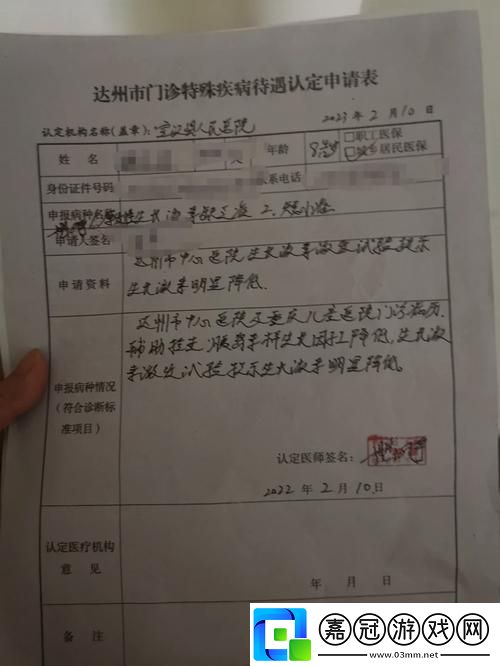 达州市门诊特殊疾病待遇认定申请表
认定机构名称(盖章): 宣汉县人民医院 2023 年 2 月 10 日
姓 名 年龄 8岁 □职工医保
□城乡居民医保
身份证件号码 联系电话
申报病种名称 生长激素缺乏症 2.
申请人签名
申请资料 达州市中心医院生长激素激发试验提示
生长激素明显降低.
达州市中心医院及重庆儿童医院门诊病历.
辅助检查:胰岛素样生长因子降低.生长激
素激发试验提示生长激素明显降低.
申报病种情况
(符合诊断标
准项目)
认定医师签名:
2022 年 2 月 10 日
认定医疗机构
意 见
年 月 日
备 注
嘉冠游戏网
www.03mm.net